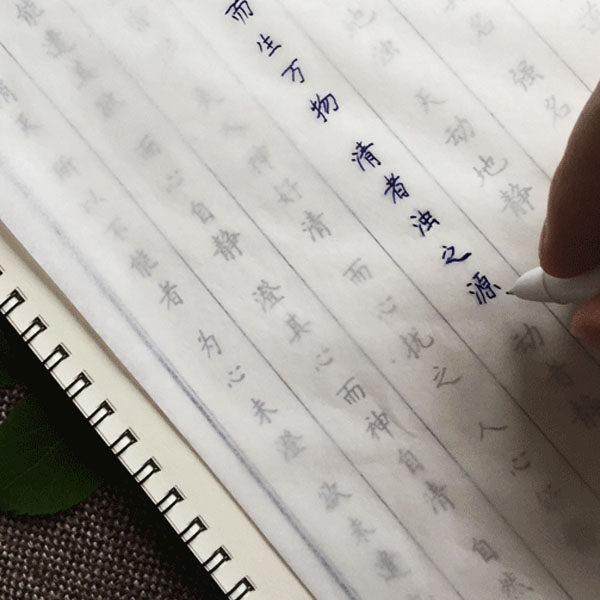 名 强名
地浊 天动地静
而生万物 清者浊之源 动者静
夫人神好清 而心扰之 人心
能遣其欲 而心自静 澄其心而神自清 自然
清矣 所以不能者 为心未澄 欲未遣